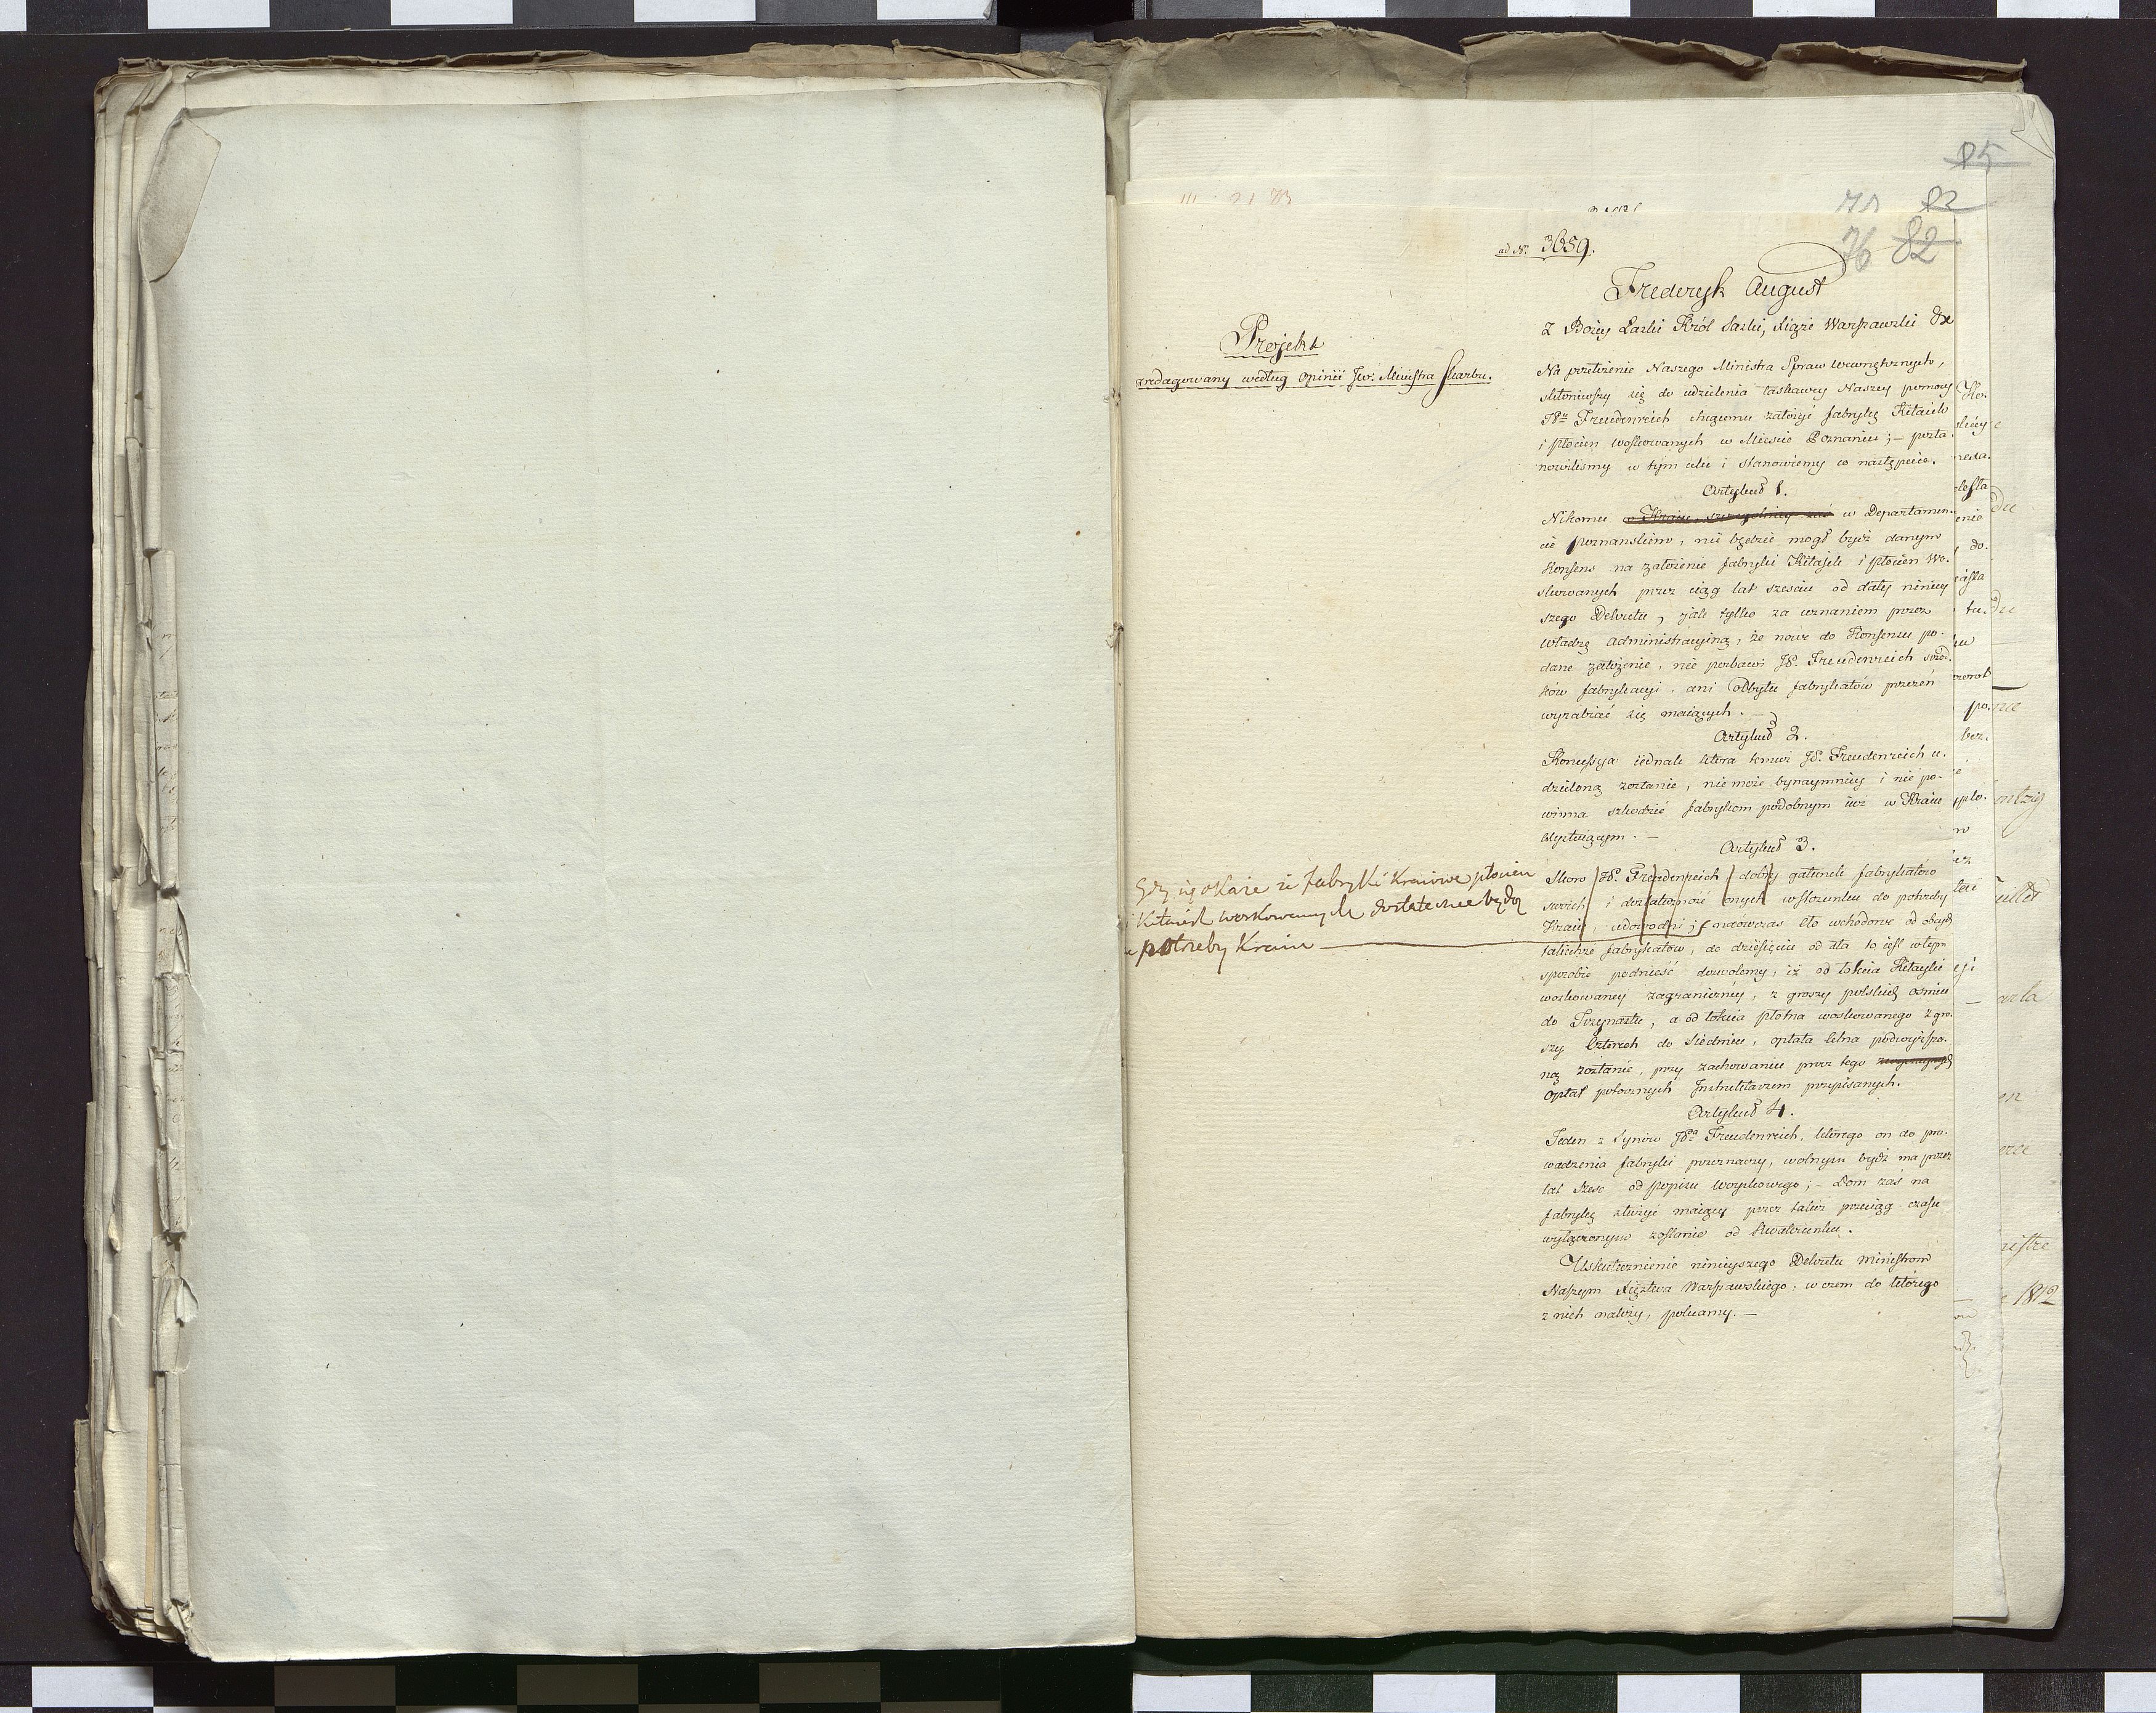 85
71 82
76 82
ad Nr. 3659.
Frederyk August
Z Bożey Łaski Król Saski, Xiąże Warszawski &c
Projekt
zredagowany według Opinii Jw. Ministra Skarbu.
Na przełożenie Naszego Ministra Spraw wewnętrznych,
skłoniwszy się do udzielenia łaskawey Naszey pomocy
Freudenreich chcącemu założyć fabrykę Kitaiek
i płócien woskowanych w Mieście Poznaniu; – posta-
nowiliśmy w tym celu i stanowiemy co następuie.
Artykuł 1.
Nikomu w Kraiu, szczególniey zaś w Departamen-
cie poznańskiem, nie będzie mógł bydź danym
Konsens na założenie fabryki Kitajek i płócien wo-
skowanych przez ciąg lat sześciu od daty niniey
szego Dekretu, jak tylko za uznaniem przez
władzę administracyiną, że nowe do Konsensu po-
dane założenie, nie pozbawi JP. Freudenreich środ-
ków fabrykacyi, ani odbytu fabrykatów przezeń
wyrabiać się maiących. –
Artykuł 2.
Koncessya iednak która temuż JP. Freudenreich u-
dzieloną zostanie, nie może bynaymniey i nie po-
winna szkodzić fabrykom podobnym iuż w Kraiu
Exystuiącym. –
Artykuł 3.
Gdy się okaże że fabryki Kraiowe płócien
i Kitaiek woskowanych dostateczne będą
potrzeby Kraiu
Skoro JP. Freudenreich dobry gatunek fabrykatów
swoich i dostateczność onych w stosunku do potrzeby
Kraiu, udowodni; naówczas Cło wchodowe od obcych
takichże fabrykatów, do dziesięciu od sta to iest w tym
sposobie podnieść dozwolemy, iż od łokcia Kitayki
woskowaney zagraniczney, z groszy polskich ośmiu
do Trzynastu, a od łokcia płótna woskowanego z gro-
szy Czterech do Siedmiu, opłata celna podwyższo-
ną zostanie, przy zachowaniu prócz tego
Opłat pobocznych Instruktarzem przepisanych.
Artykuł 4.
Jeden z Synów JPa Freudenreich, którego on do pro-
wadzenia fabryki przeznaczy, wolnym bydź ma przez
lat sześć od popisu woyskowego; – Dom zaś na
fabrykę służyć maiący przez takiż przeciąg czasu
wyłączonym zostanie od Kwaterunku.
Uskutecznienie ninieyszego Dekretu Ministrom
Naszym Xięstwa Warszawskiego, w czem do którego
z nich należy, polecamy. –
1812